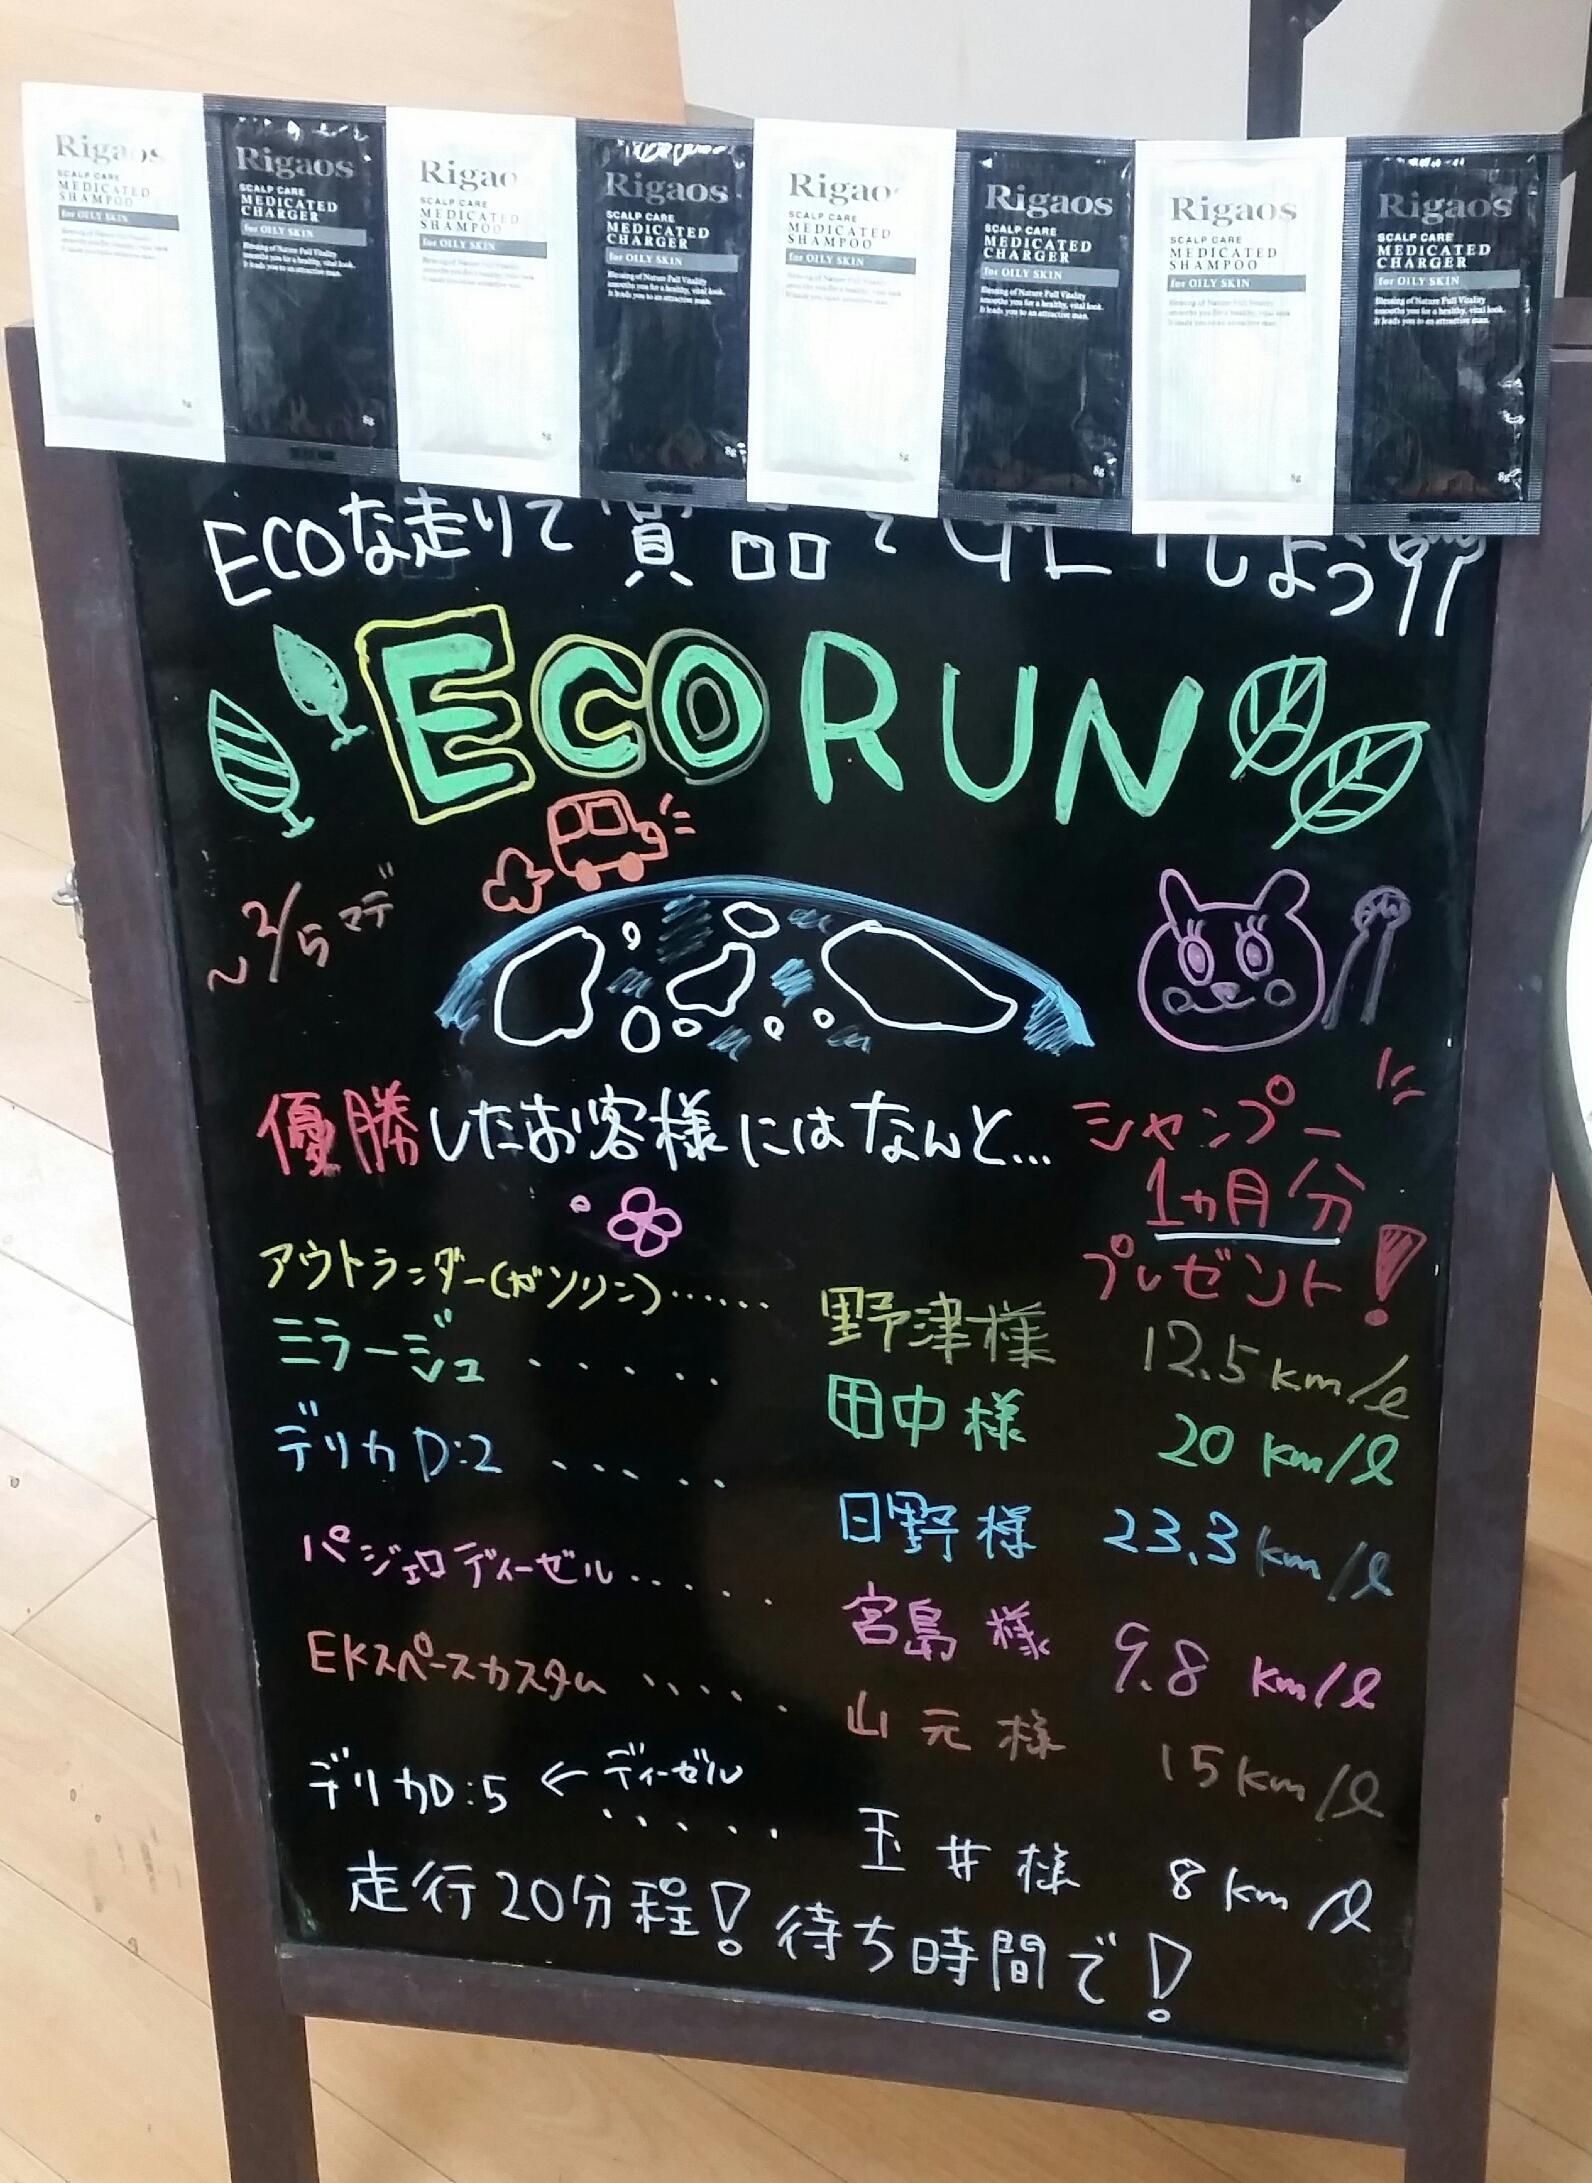 Rigaos
SCALP CARE
MEDICATED
SHAMPOO
for OILY SKIN
Blessing of Nature Full Vitality
smooths you for a healthy, vital look.
It leads you to an attractive man.
8g
Rigaos
SCALP CARE
MEDICATED
CHARGER
for OILY SKIN
Blessing of Nature Full Vitality
smooths you for a healthy, vital look.
It leads you to an attractive man.
8g
Rigaos
SCALP CARE
MEDICATED
SHAMPOO
for OILY SKIN
Blessing of Nature Full Vitality
smooths you for a healthy, vital look.
It leads you to an attractive man.
8g
Rigaos
SCALP CARE
MEDICATED
CHARGER
for OILY SKIN
Blessing of Nature Full Vitality
smooths you for a healthy, vital look.
It leads you to an attractive man.
8g
Rigaos
SCALP CARE
MEDICATED
SHAMPOO
for OILY SKIN
Blessing of Nature Full Vitality
smooths you for a healthy, vital look.
It leads you to an attractive man.
8g
Rigaos
SCALP CARE
MEDICATED
CHARGER
for OILY SKIN
Blessing of Nature Full Vitality
smooths you for a healthy, vital look.
It leads you to an attractive man.
8g
Rigaos
SCALP CARE
MEDICATED
SHAMPOO
for OILY SKIN
Blessing of Nature Full Vitality
smooths you for a healthy, vital look.
It leads you to an attractive man.
8g
Rigaos
SCALP CARE
MEDICATED
CHARGER
for OILY SKIN
Blessing of Nature Full Vitality
smooths you for a healthy, vital look.
It leads you to an attractive man.
8g
ECOな走りで賞品をGETしよう!!
ECO RUN
~2/5マデ
優勝したお客様にはなんと... シャンプー
1ヵ月分
プレゼント!
アウトランダー(ガソリン)...... 野津様 12.5km/ℓ
ミラージュ ..... 田中様 20km/ℓ
デリカD:2 ..... 日野様 23.3km/ℓ
パジェロディーゼル..... 宮島様 9.8km/ℓ
EKスペースカスタム ..... 山元様 15km/ℓ
デリカD:5 ← ディーゼル ..... 玉井様 8km/ℓ
走行20分程! 待ち時間で!